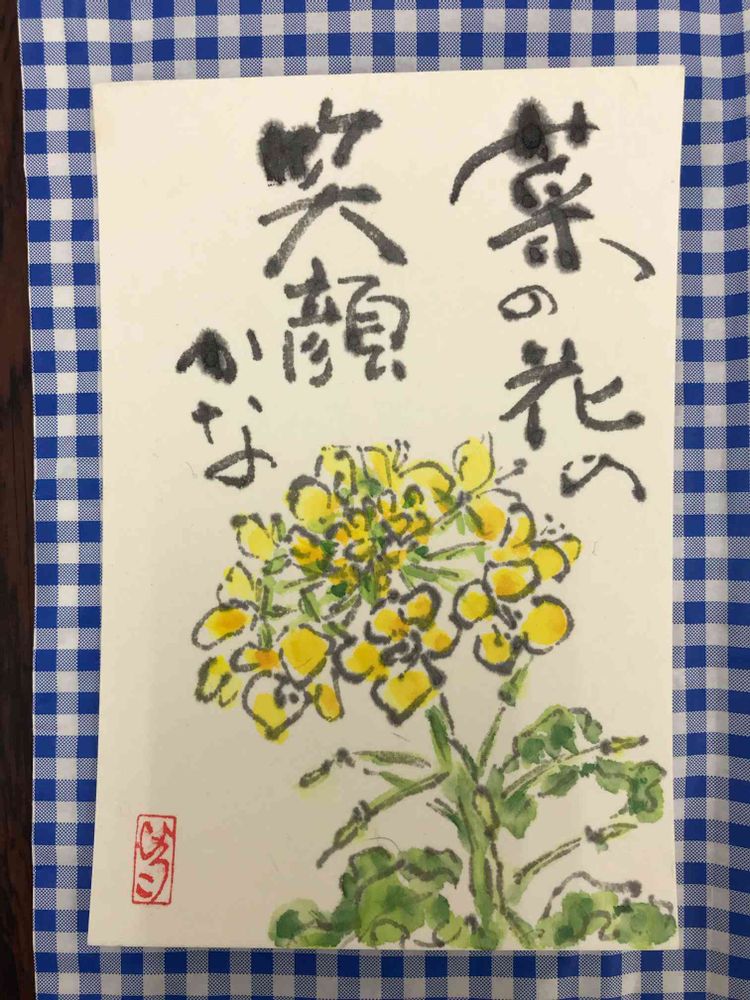 菜の花の
笑顔
かな
ひろこ